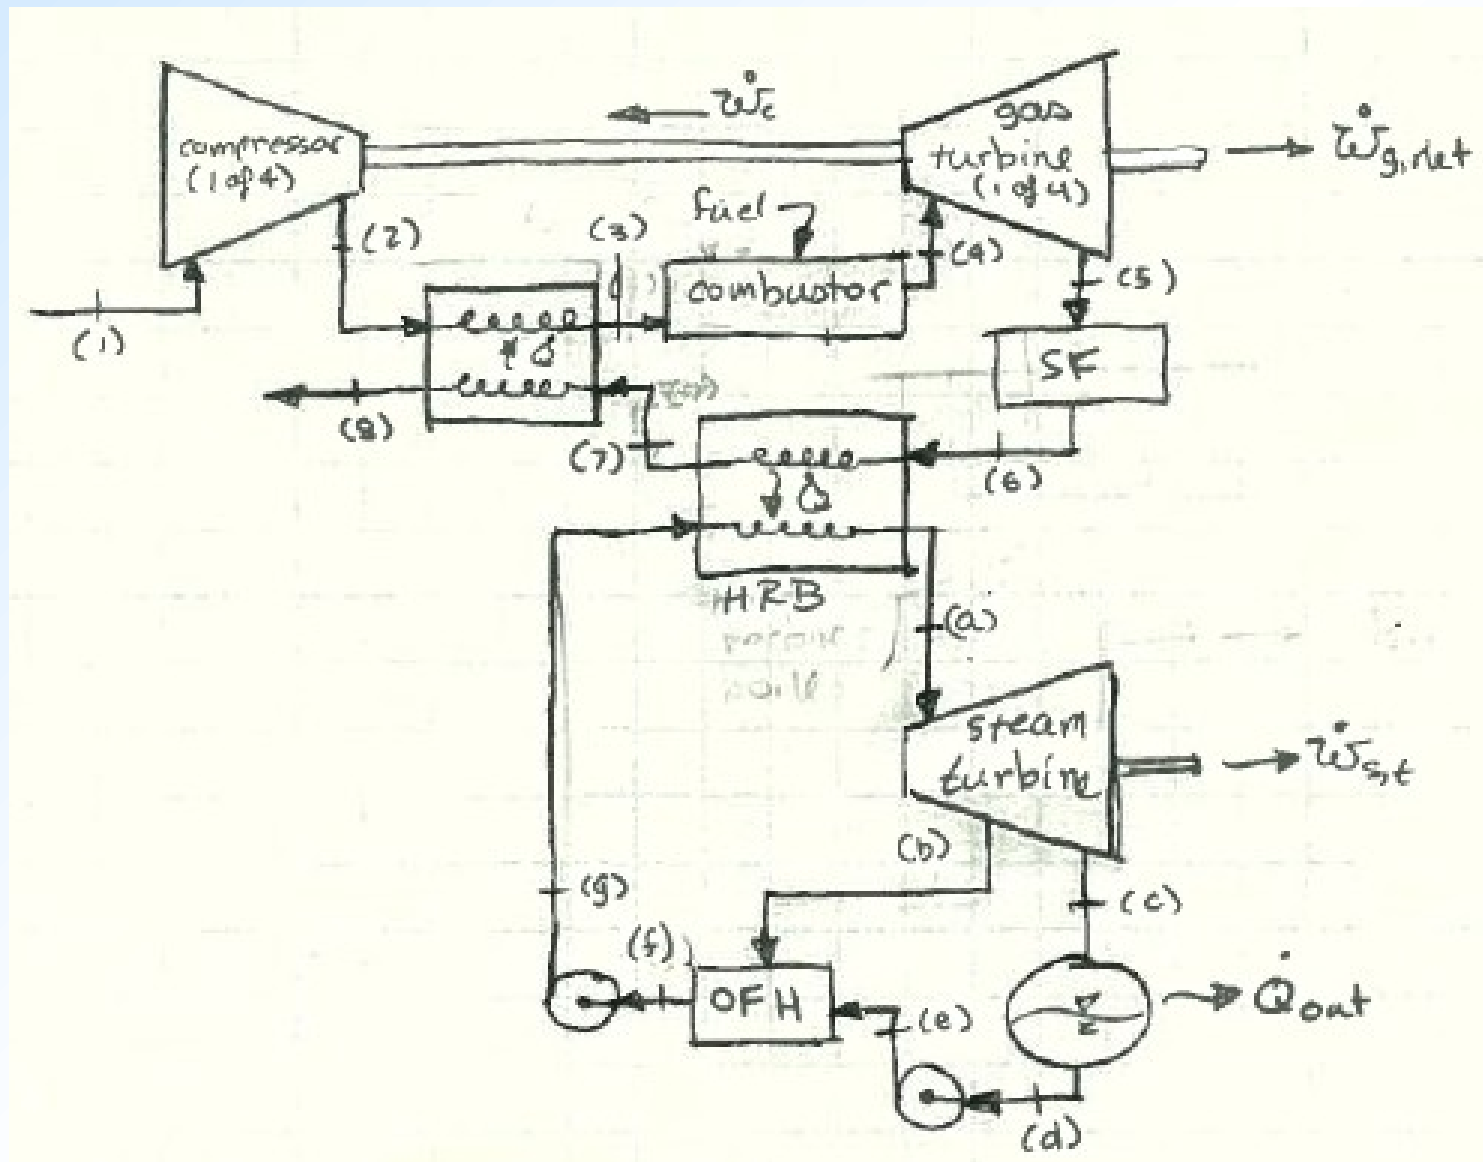 ẇc
compressor
(1 of 4)
gas
turbine
(1 of 4)
ẇg,net
fuel
(2)
(3)
(4)
(5)
combustor
(1)
SF
(8)
(7)
(6)
Q
HRB
(a)
steam
turbine
ẇs,t
(b)
(g)
(c)
(f)
OFH
(e)
Q̇out
(d)